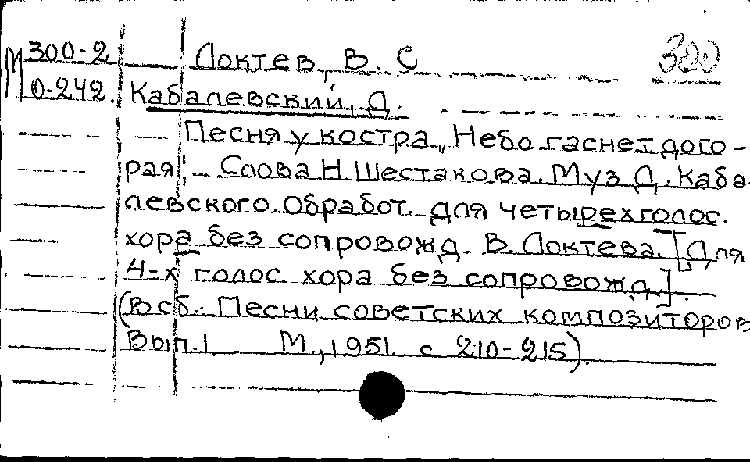 М 300-2 Локтев, В. С 320
0-242. Кабалевский, Д.
Песня у костра „Небо гаснет дого-
рая". – Слова Н. Шестакова. Муз Д. Каба
левского. Обработ. для четырехголос.
хора без сопровожд. В. Локтева. [Для
4-х голос хора без сопровожд.]
(В сб.: Песни советских композиторов
Вып. 1 М., 1951. с 210-215).